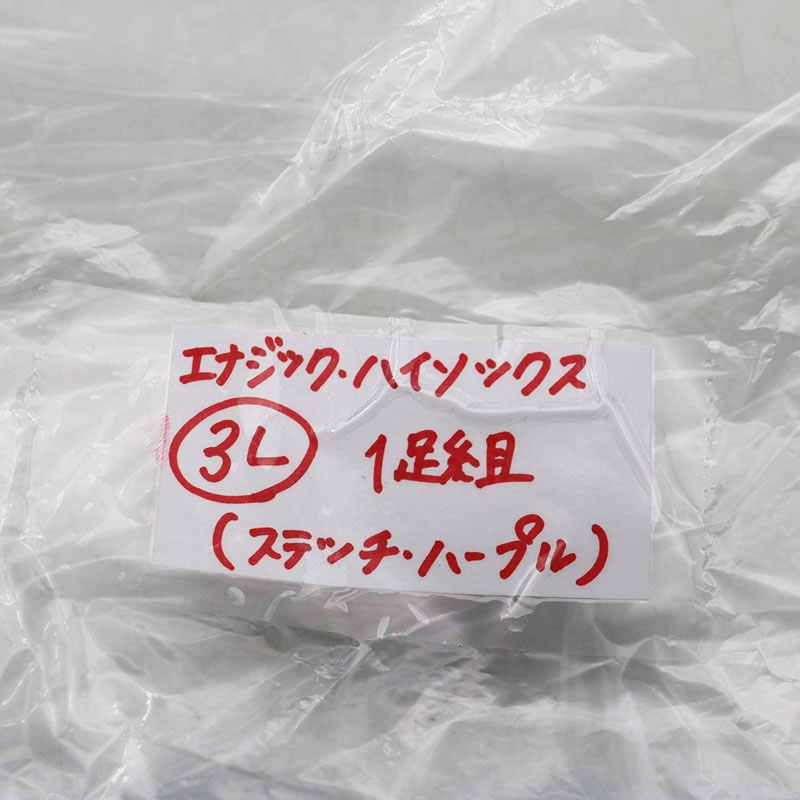 エナジック・ハイソックス
3L 1足組
(ステッチ・ハープル)